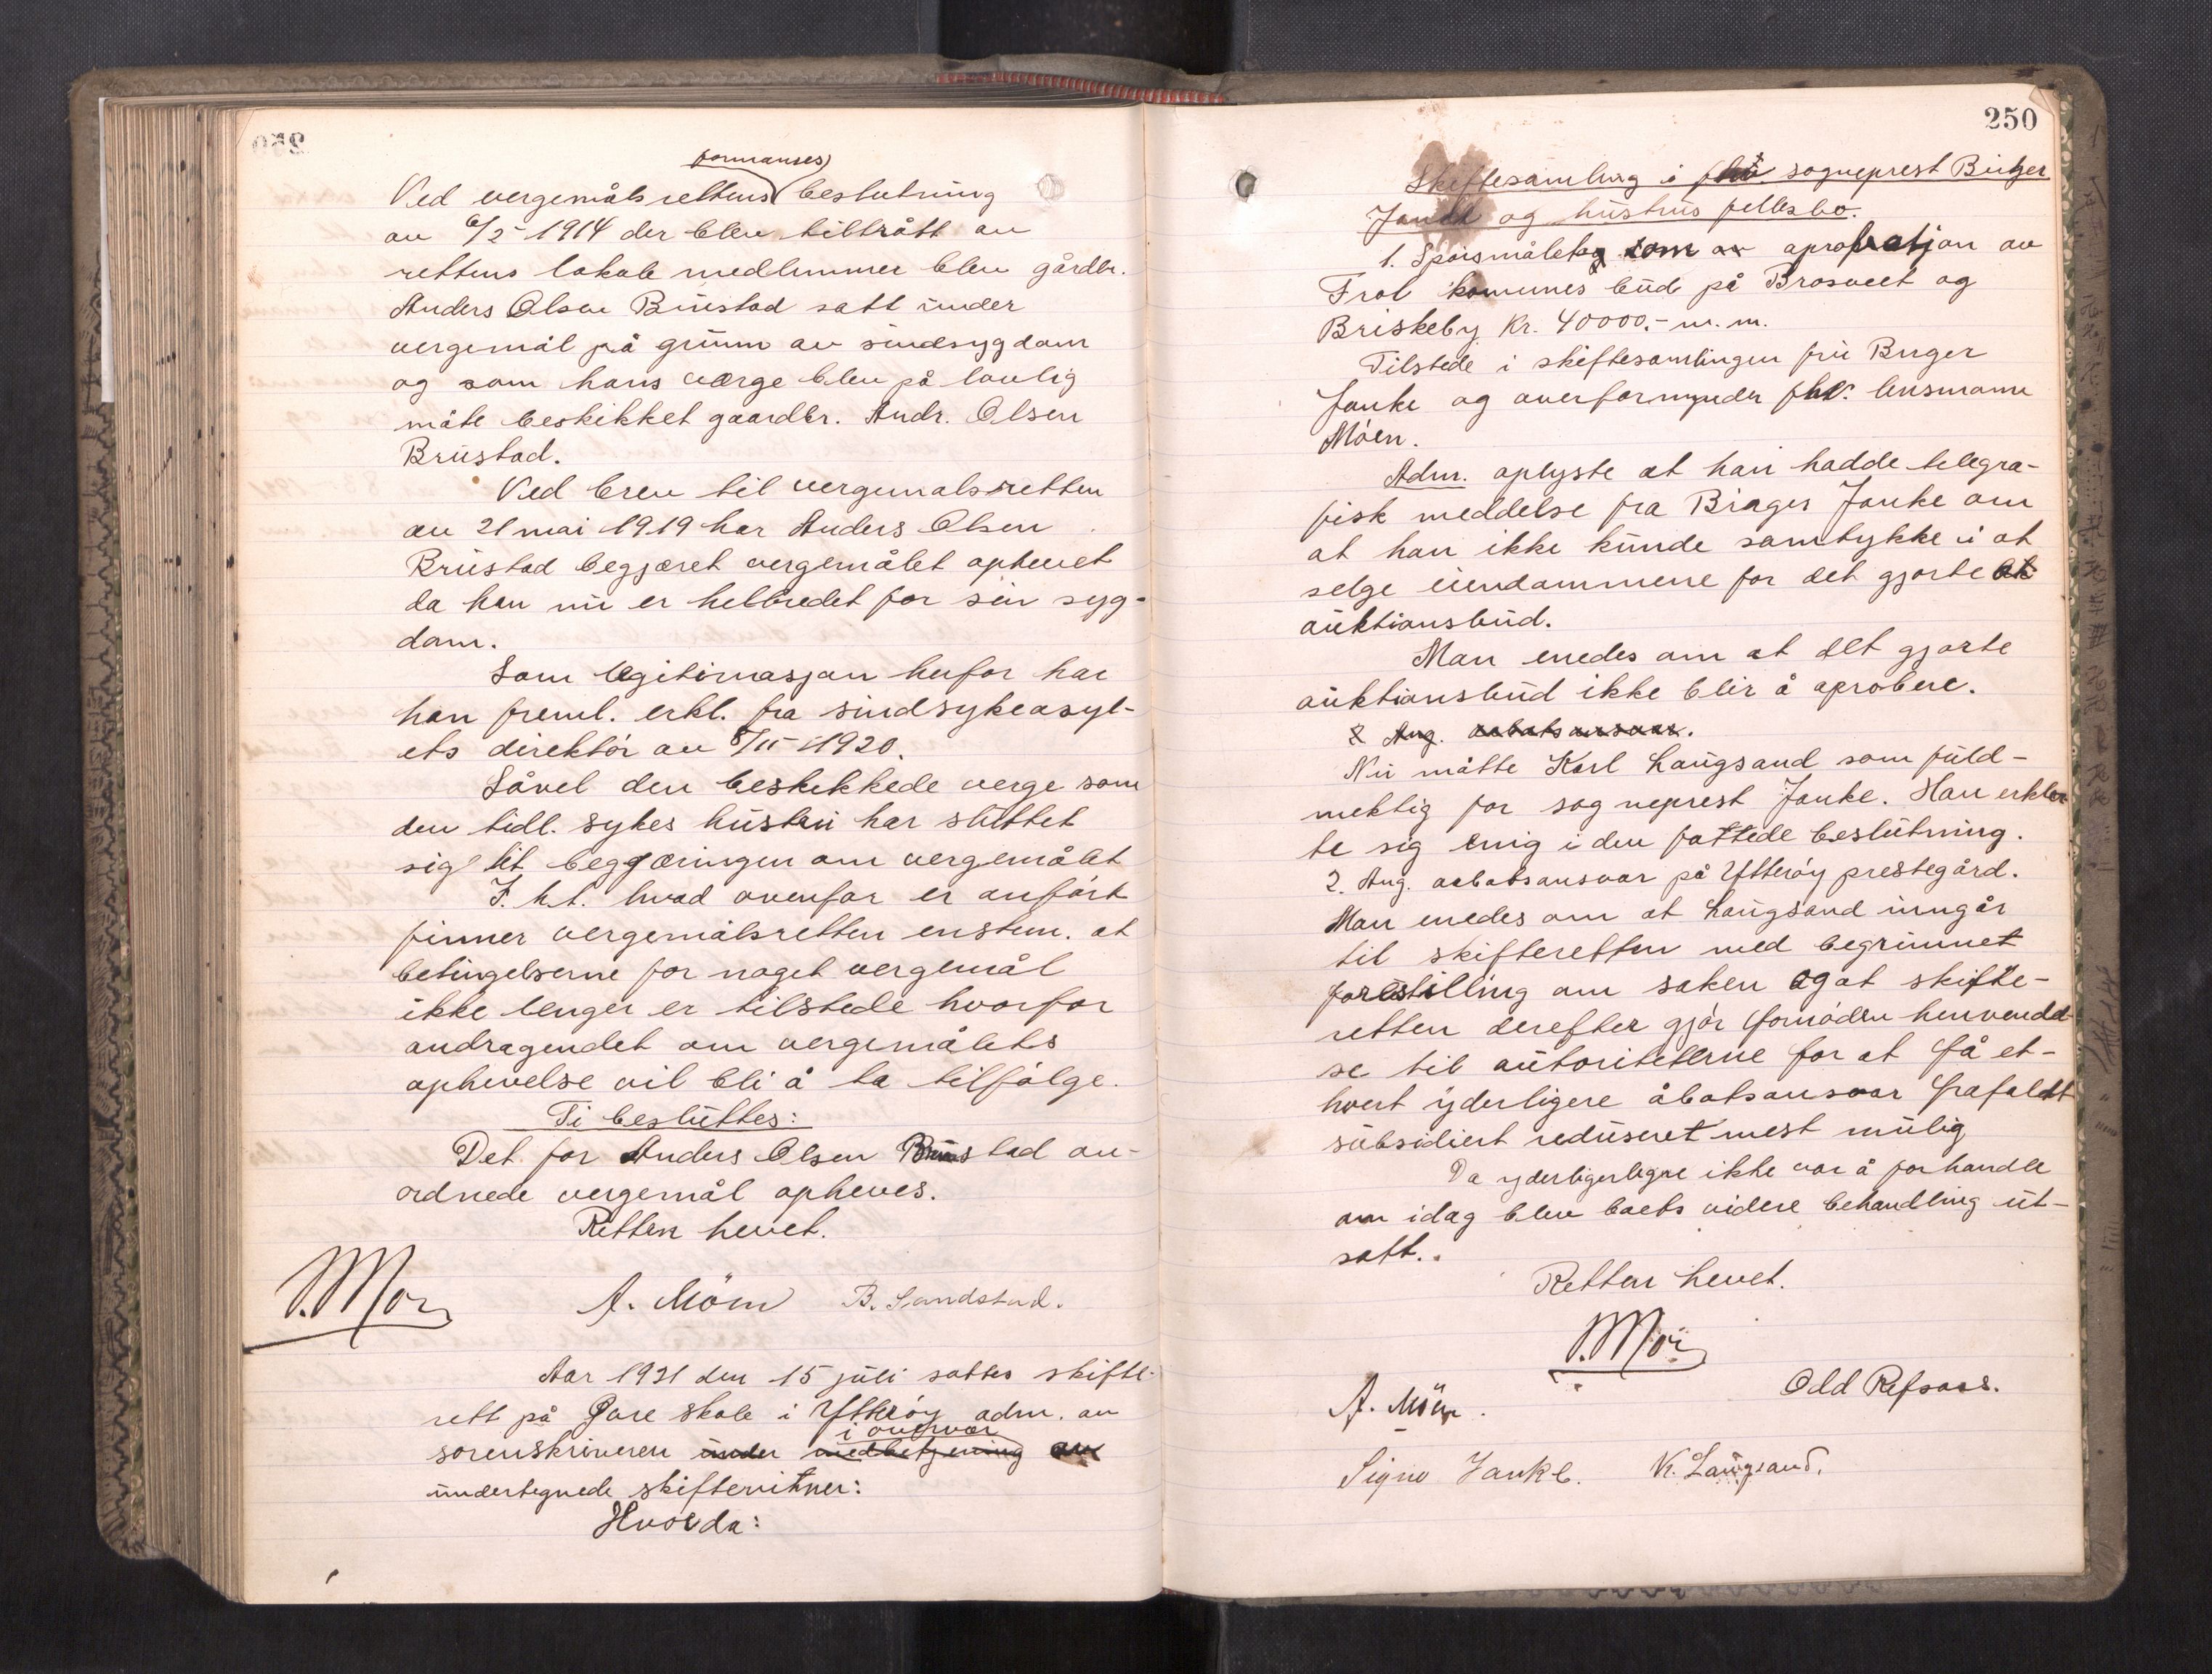 formanses
Ved vergemålsrettens beslutning
av 6/5 1914 der blev tiltrått av
rettens lokale medlemmer blev gårdbr.
Anders Olsen Brustad satt under
vergemål på grunn av sindsygdom
og som hans værge blev på lovlig
måte beskikket gaardbr. Andr. Olsen
Brustad.
Ved brev til vergemalsretten
av 21 mai 1919 har Anders Olsen
Brustad begjæret vergemålet ophevet
da han nu er helbredet for sin syg-
dom.
Som legitimasjon herfor har
han freml. erkl. fra sindsykeasyl-
ets direktör av 8/11 1920.
Såvel den beskikkede verge som
den tidl. sykes hustru har sluttet
sig til begjæringen om vergemålet
F. h.t. hvad ovenfor er anfört
finner vergemålsretten enstem. at
betingelserne for noget vergemål
ikke lenger er tilstede hvorfor
andragendet om vergemålets
ophevelse vil bli å ta tilfölge.
Ti besluttes:
Det for Anders Olsen Brustad an-
ordnede vergemål opheves.
Retten hevet.
A. Möen B. Sandstad.
Aar 1921 den 15 juli sattes skifte-
rett på skole i Ytteröy adm. av
i overvær
sorenskriveren under medbetjening av
undertegnede skiftevitner:
Hvorda:
250
Skiftesamling i fhv. sogneprest Birger
Janke og hustrus fellesbo.
1. Spörsmålet om aprobatjon av
Frol komunes bud på Brosveet og
Briskeby kr. 40000.- m.m.
Tilstede i skiftesamlingen fru Birger
Janke og overformynder fhv. lensmann
Möen.
Adm. oplyste at han hadde telegra-
fisk meddelse fra Birger Janke om
at han ikke kunde samtykke i at
selge eiendommene for det gjorte
auktionsbud.
Man enedes om at det gjorte
auktionsbud ikke blir å aprobere.
2 Ang. aabotsansvar.
Nu måtte Karl Laugsand som fuld-
mektig for sogneprest Janke. Han erklær
te sig enig i den fattede beslutning.
2. Ang. aabotsansvar på Ytteröy prestegård.
Man enedes om at Laugsand inngår
til skifteretten med begrunnet
forestilling om saken og at skifte-
retten derefter gjör fornöden henvendel
se til autoriteterne for at få et-
hvert yderligere åbotsansvar frafaldt
subsidiert reduseret mest mulig
Da yderligere ikke var å forhandle
om idag blev boets videre behandling ut-
satt.
Retten hevet.
A. Möen. Odd Refsaas.
Signe Janke. K. Laugsand.